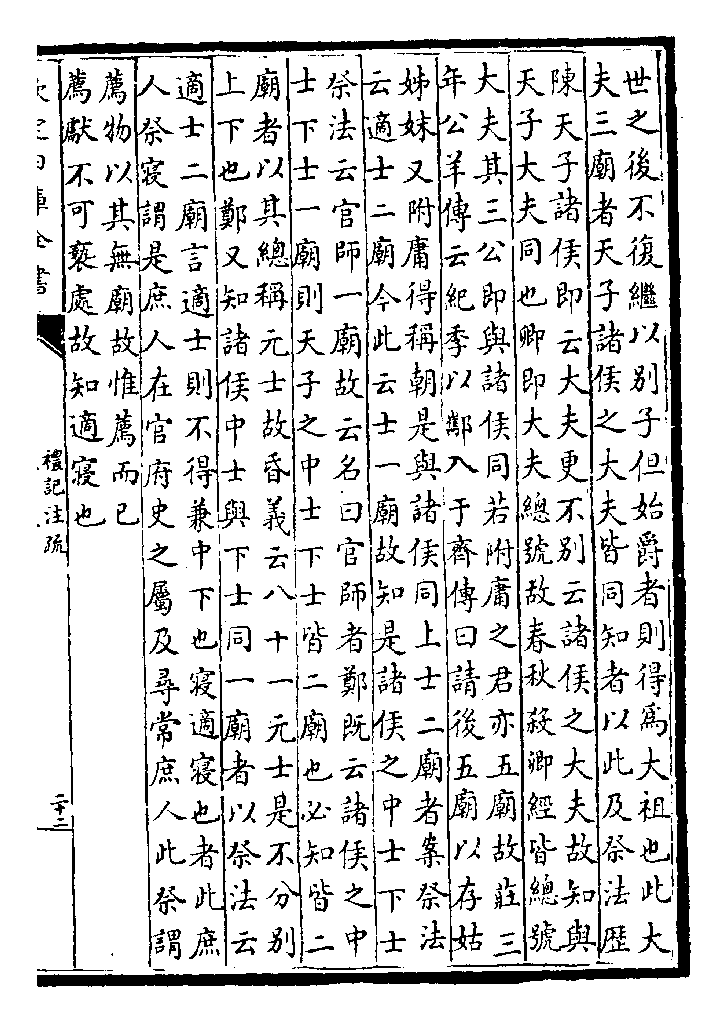 世之後不復繼以别子但始爵者則得爲大祖也此大
夫三廟者天子諸侯之大夫皆同知者以此及祭法歷
陳天子諸侯即云大夫更不别云諸侯之大夫故知與
天子大夫同也卿即大夫總號故春秋殺卿經皆總號
大夫其三公即與諸侯同若附庸之君亦五廟故莊三
年公羊傳云紀季以酅入于齊傳曰請後五廟以存姑
姊妹又附庸得稱朝是與諸侯同上士二廟者案祭法
云適士二廟今此云士一廟故知是諸侯之中士下士
祭法云官師一廟故云名曰官師者鄭既云諸侯之中
士下士一廟則天子之中士下士皆二廟也必知皆二
廟者以其總稱元士故昏義云八十一元士是不分别
上下也鄭又知諸侯中士與下士同一廟者以祭法云
適士二廟言適士則不得兼中下也寝適寝也者此庶
人祭寝謂是庶人在官府史之屬及尋常庶人此祭謂
薦物以其無廟故惟薦而已
薦獻不可褻處故知適寝也
欽定四庫全書
禮記注疏
二十二